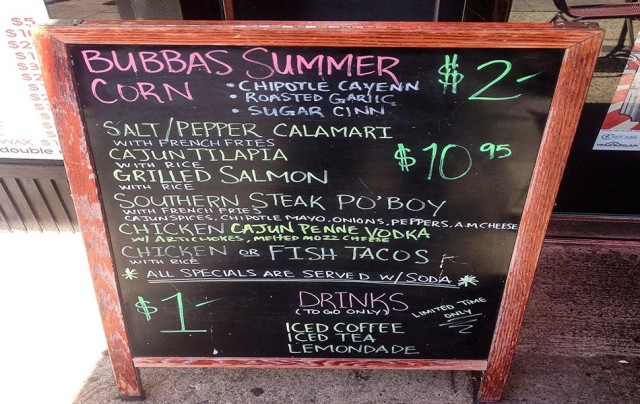 BUBBAS SUMMER $2-
CORN • CHIPOTLE CAYENN
• ROASTED GARLIC
• SUGAR CINN.
SALT/PEPPER CALAMARI
WITH FRENCH FRIES
CAJUN TILAPIA $10 95
WITH RICE
GRILLED SALMON
WITH RICE
SOUTHERN STEAK PO'BOY
WITH FRENCH FRIES
CAJUN SPICES, CHIPOTLE MAYO, ONIONS, PEPPERS, A.M CHEESE
CHICKEN CAJUN PENNE VODKA
W/ ARTICHOKES, MELTED MOZZ CHEESE
CHICKEN OR FISH TACOS
WITH RICE
* ALL SPECIALS ARE SERVED W/ SODA *
$1- DRINKS
(TO GO ONLY)
LIMITED TIME
ONLY
ICED COFFEE
ICED TEA
LEMONDADE